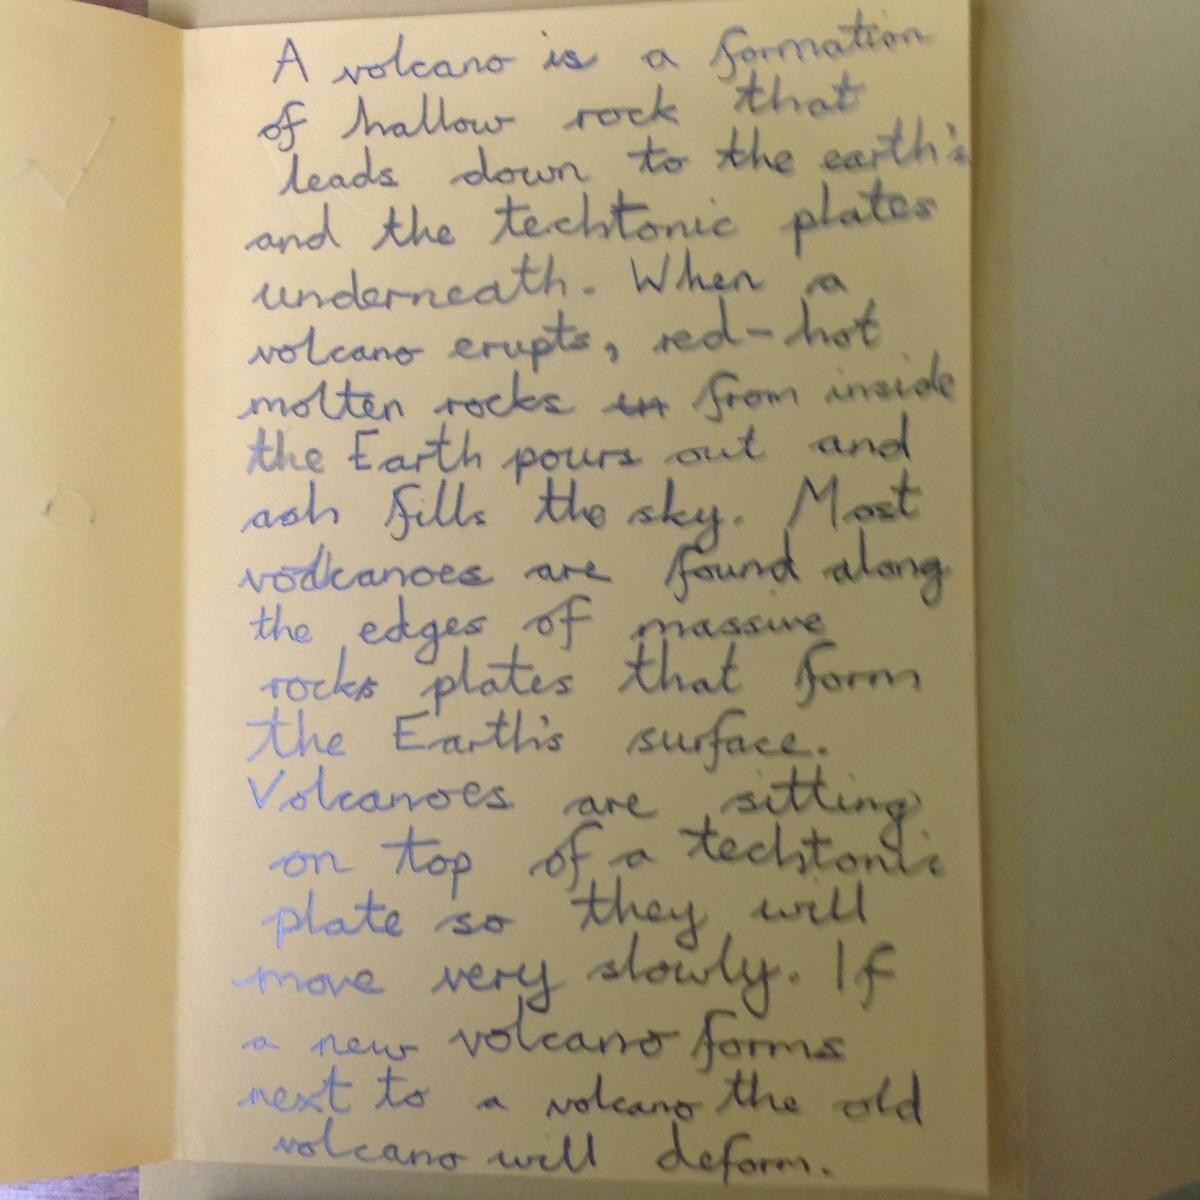 A volcano is a formation
of hallow rock that
leads down to the earth's
and the techtonic plates
underneath. When a
volcano erupts, red-hot
molten rocks in from inside
the Earth pours out and
ash fills the sky. Most
vodcanoes are found along
the edges of massive
rocks plates that form
the Earth's surface.
Volcanoes are sitting
on top of a techtonic
plate so they will
move very slowly. If
a new volcano forms
next to a volcano the old
volcano will deform.